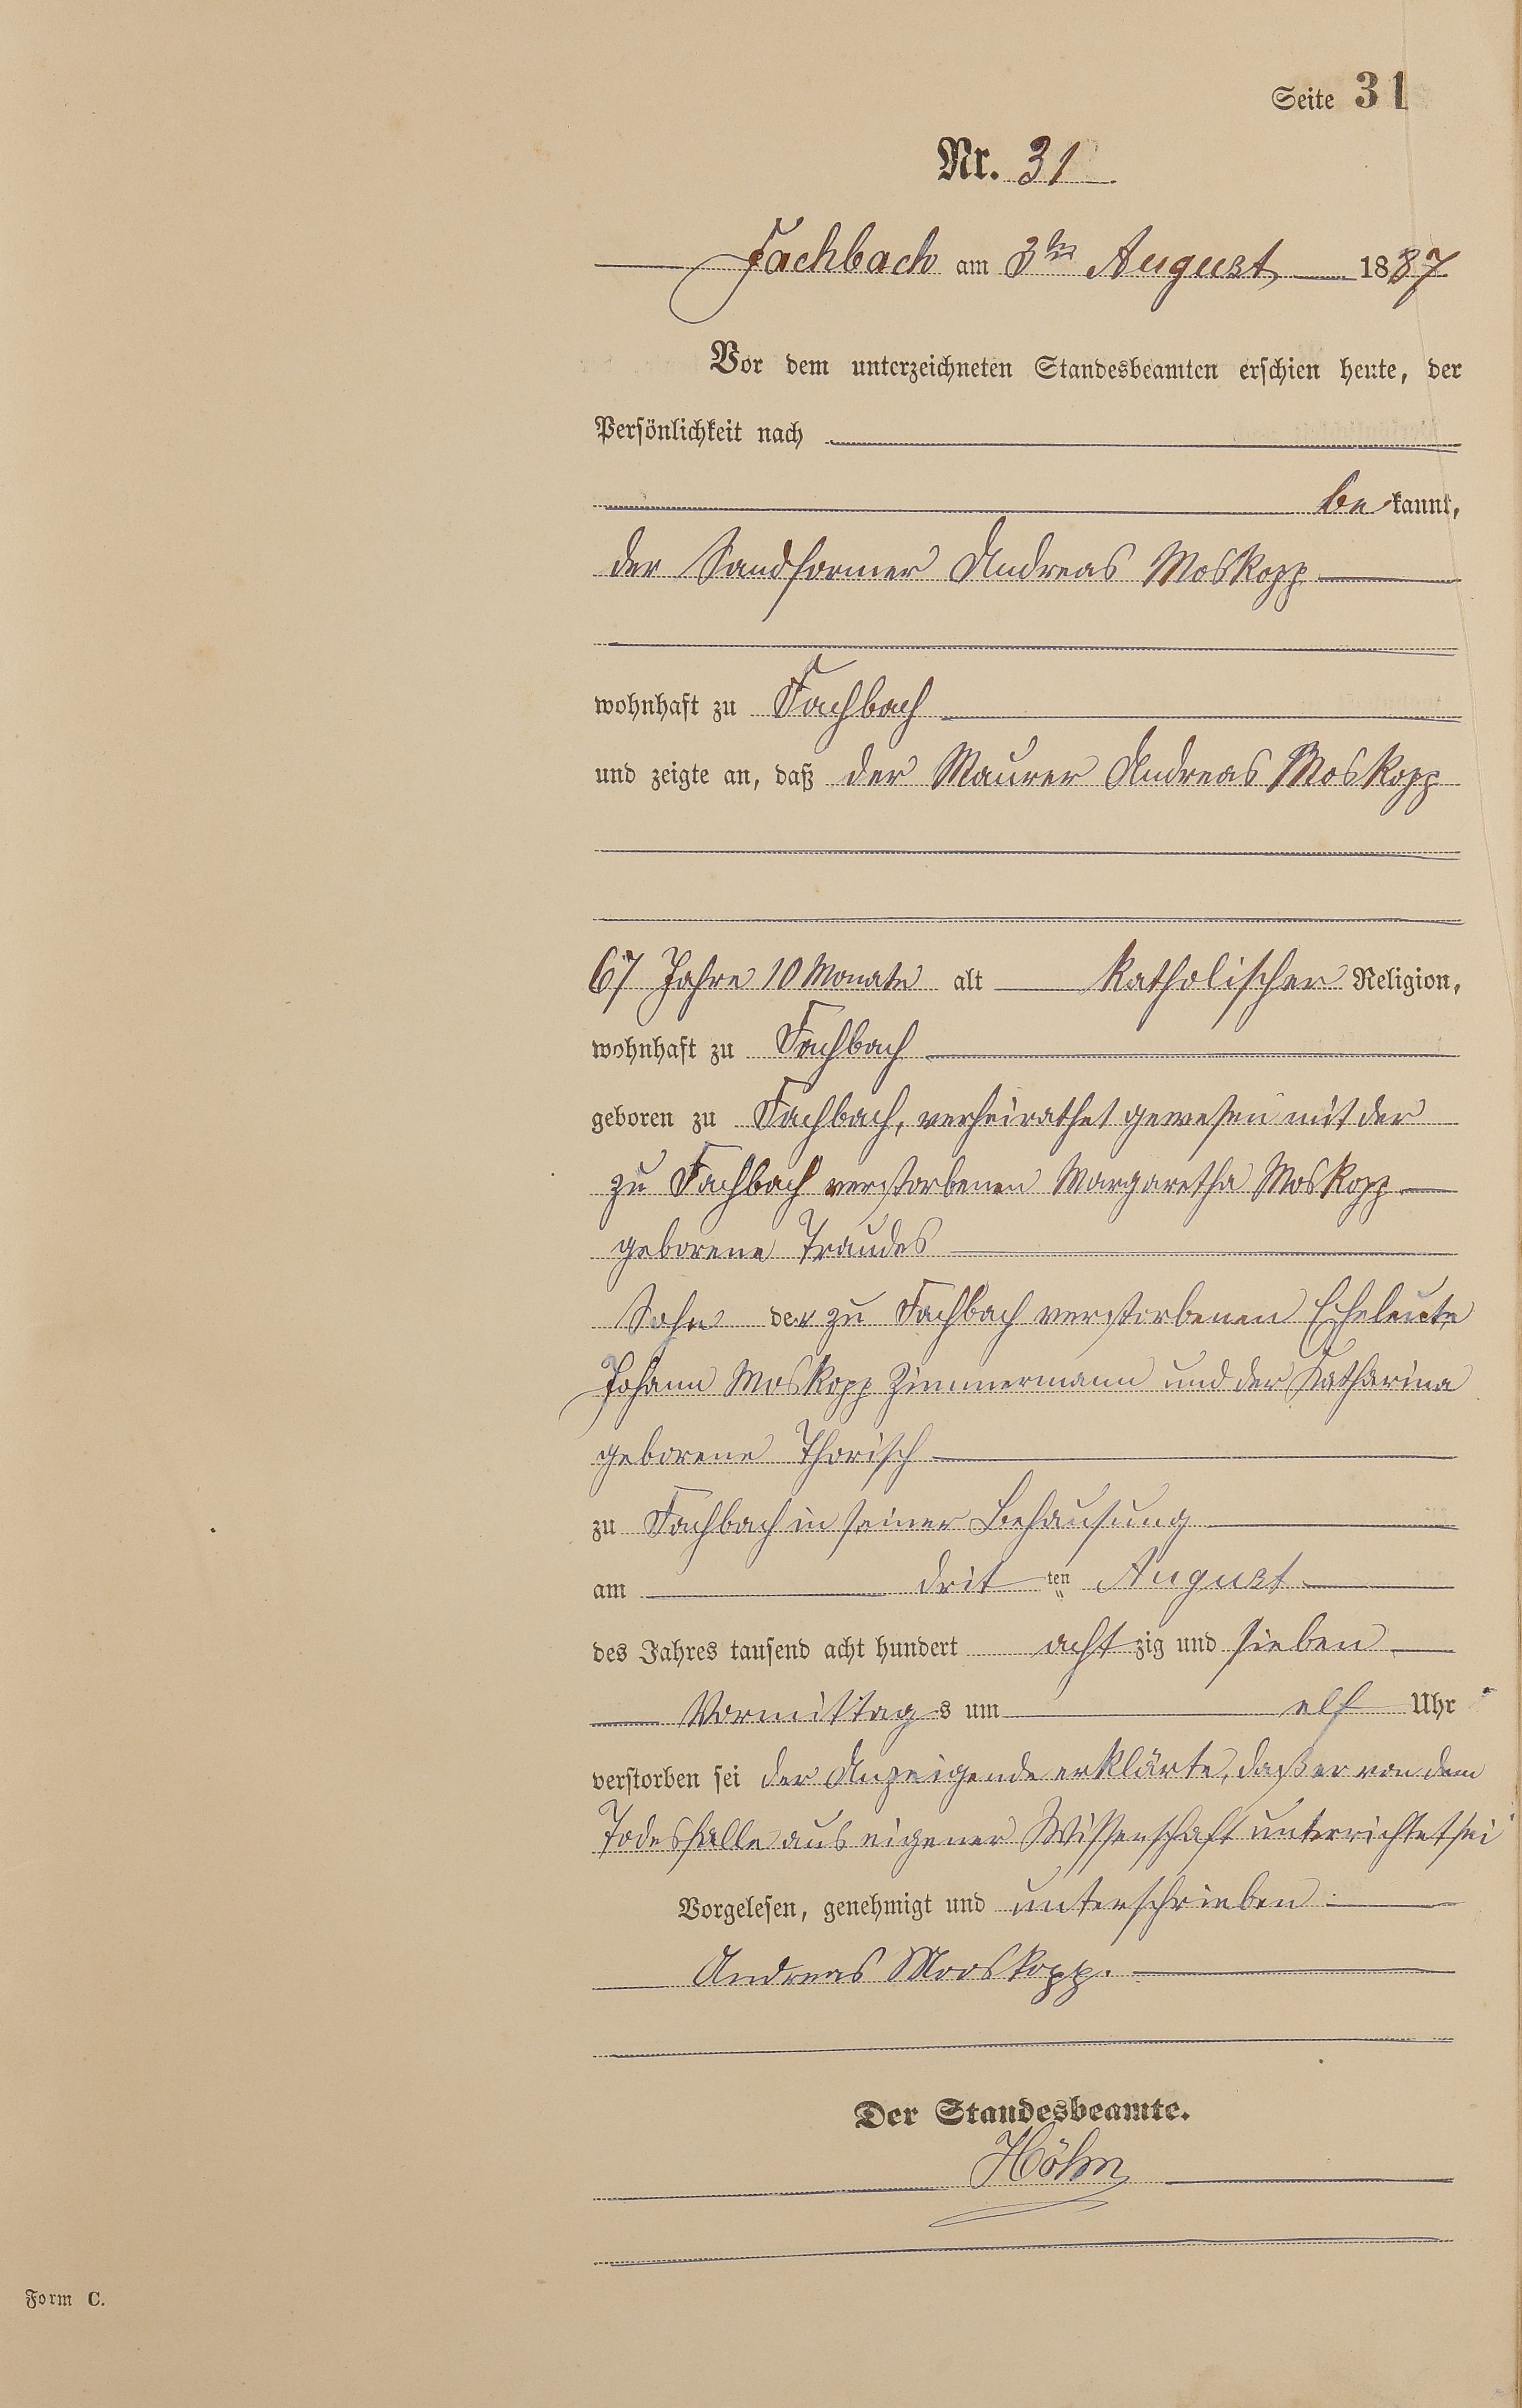 Seite 31
Nr. 31
Fachbach am 3ten August 1887
Vor dem unterzeichneten Standesbeamten erschien heute, der
Persönlichkeit nach
be kannt,
der Sandformer Andreas Moskopp
wohnhaft zu Fachbach
und zeigte an, daß der Maurer Andreas Moskopp
67 Jahre 10 Monate alt katholischer Religion,
wohnhaft zu Fachbach
geboren zu Fachbach, verheirathet gewesen mit der
zu Fachbach verstorbenen Margaretha Moskopp
geborene Traudes
Sohn der zu Fachbach verstorbenen Eheleute
Johann Moskopp Zimmermann und der Katharina
geborene Thorisch
zu Fachbach in seiner Behausung
am drit ten August
des Jahres tausend acht hundert acht zig und sieben
Vormittag s um elf Uhr
verstorben sei der Anzeigende erklärte, daß er von dem
Todesfalle aus eigener Wissenschaft unterrichtet sei
Vorgelesen, genehmigt und unterschrieben
Andreas Mooskopp.
Der Standesbeamte.
Höhn
Form C.